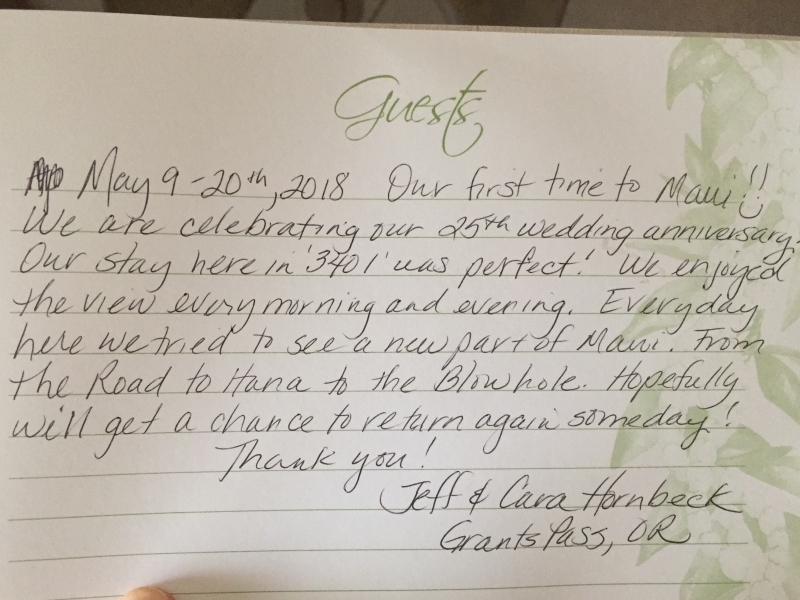 Guests
May 9-20th, 2018 Our first time to Maui!!
We are celebrating our 25th wedding anniversary.
Our stay here in '3401' was perfect! We enjoyed
the view every morning and evening. Everyday
here we tried to see a new part of Maui. From
the Road to Hana to the Blowhole. Hopefully
will get a chance to return again someday!
Thank you!
Jeff & Cara Hornbeck
Grants Pass, OR